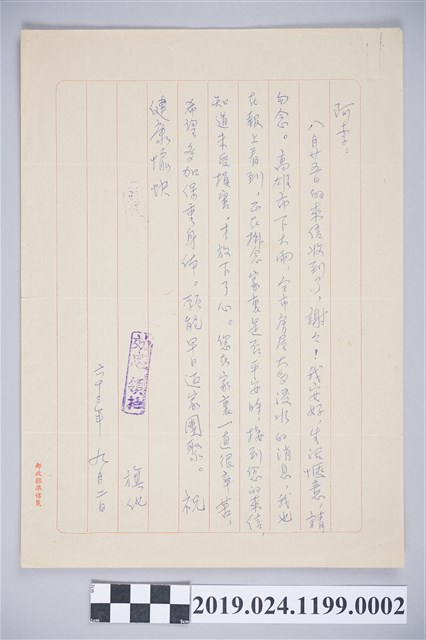 阿李：
八月廿五日的來信收到了，謝々！我安好，生活愜意，請
勿念。高雄市下大雨，全市房屋大多浸水的消息，我也
在報上看到，正在掛念家裏是否平安時，接到您的來信，
知道未受損害，才放下了心。您在家裏一直很辛苦，
希望多加保重身体。願能早日返家團聚。 祝
健康愉快
旗化
六十三年九月二日
郵政標準信箋
2019.024.1199.0002